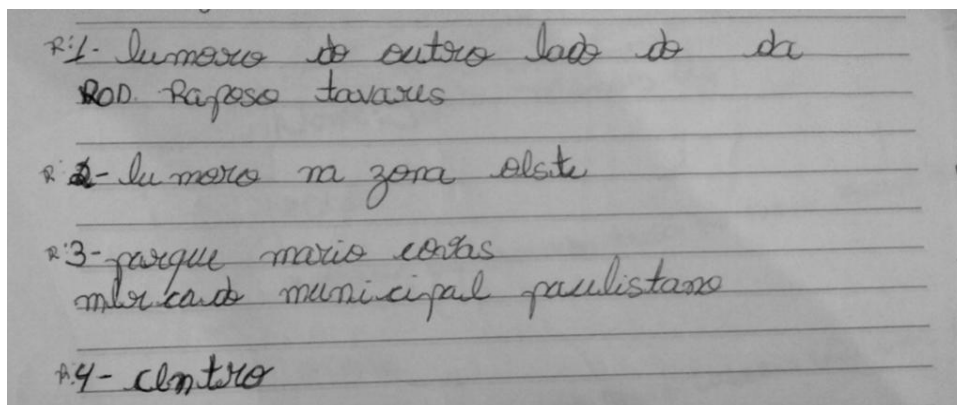 R:1- Eu moro do outro lado do da
ROD. Raposo tavares
R:2- Eu moro na zona olste
R:3- parque mario covas
mercado municipal paulistano
R:4- centro